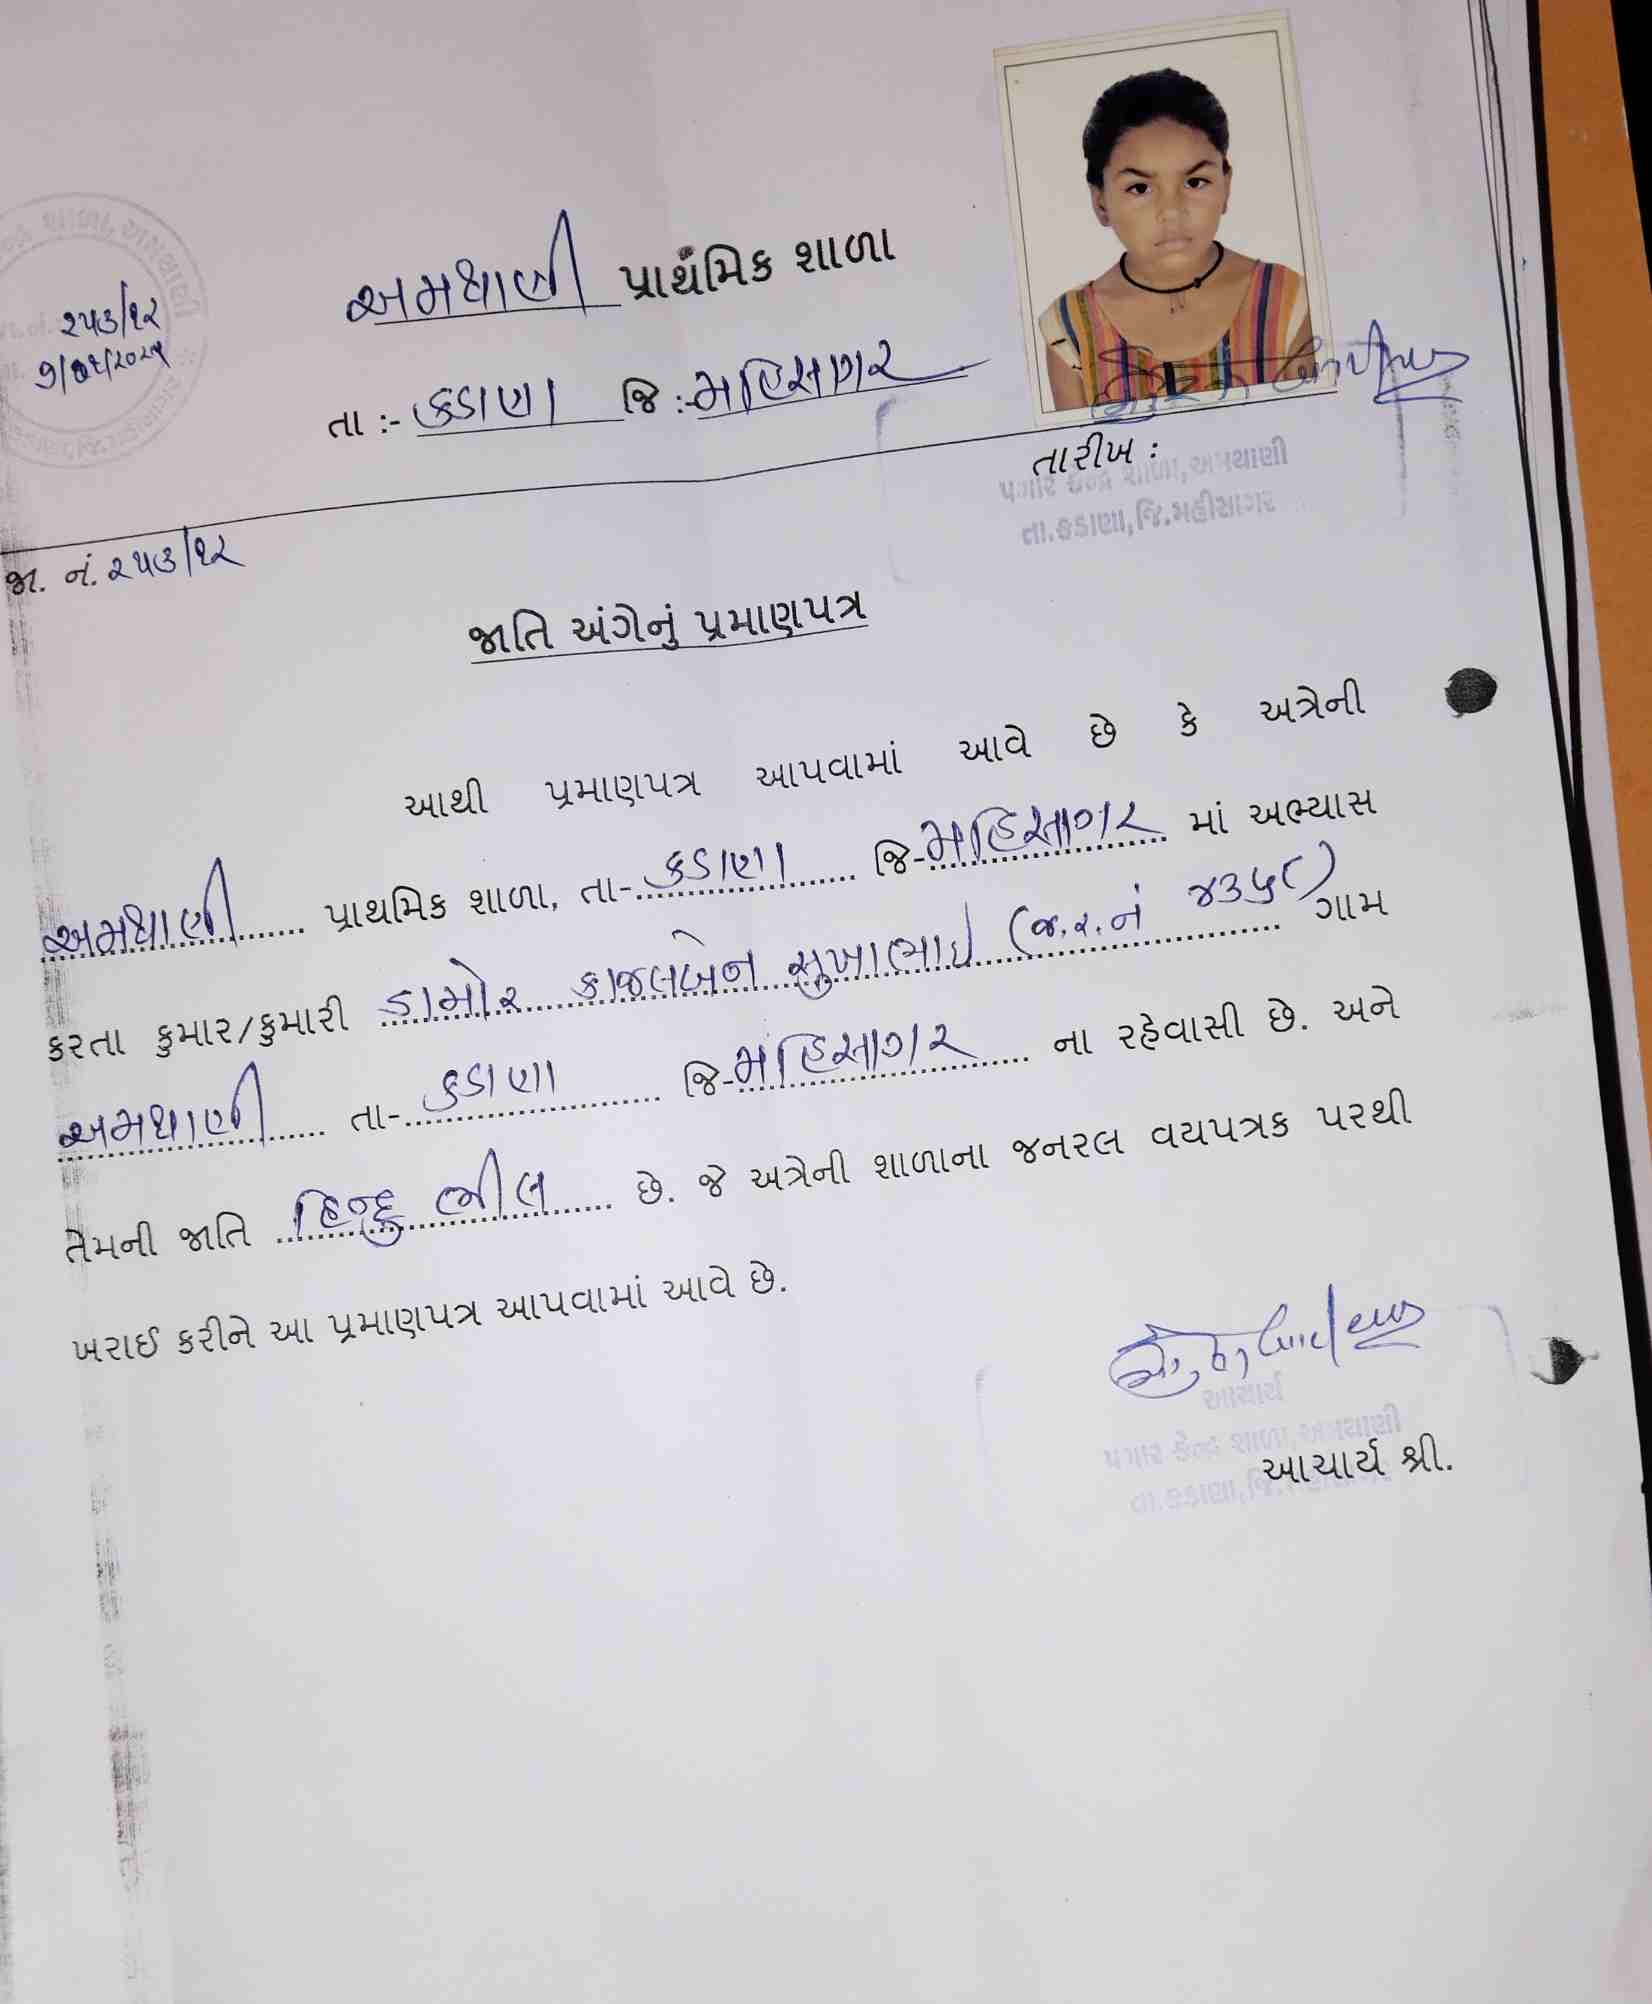 અમથાણી પ્રાથમિક શાળા
૨૫૩/૧૨
તા :- કડાણા જિ :- મહિસાગર
તારીખ :
પગાર કેન્દ્ર શાળા, અમથાણી
તા.કડાણા, જિ.મહીસાગર
જા. નં. ૨૫૩/૧૨
જાતિ અંગેનું પ્રમાણપત્ર
આથી પ્રમાણપત્ર આપવામાં આવે છે કે અત્રેની
અમથાણી પ્રાથમિક શાળા, તા- કડાણા જિ- મહિસાગર માં અભ્યાસ
કરતા કુમાર/કુમારી ડામોર કાજલબેન સુખાભાઇ (જ.ર.નં ૪૩૫૮) ગામ
અમથાણી તા- કડાણા જિ- મહિસાગર ના રહેવાસી છે. અને
તેમની જાતિ હિન્દુ ભીલ છે. જે અત્રેની શાળાના જનરલ વયપત્રક પરથી
ખરાઈ કરીને આ પ્રમાણપત્ર આપવામાં આવે છે.
આચાર્ય
પગાર કેન્દ્ર શાળા, અમથાણી
આચાર્ય શ્રી.